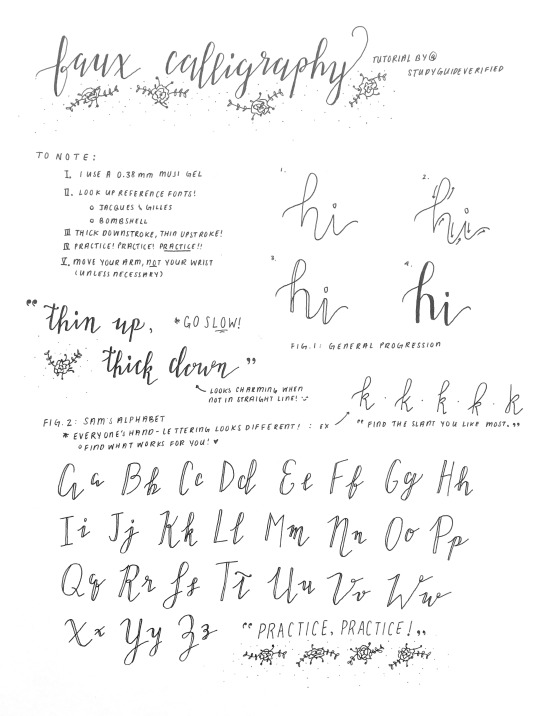 faux calligraphy
TUTORIAL BY@
STUDYGUIDEVERIFIED
TO NOTE:
I. I USE A 0.38 mm MUJI GEL
II. LOOK UP REFERENCE FONTS!
○ JACQUES & GILLES
○ BOMBSHELL
III. THICK DOWNSTROKE, THIN UPSTROKE!
IV. PRACTICE! PRACTICE! PRACTICE!!
V. MOVE YOUR ARM, NOT YOUR WRIST
(UNLESS NECESSARY)
1. hi
2. hi
3. hi
4. hi
FIG.1: GENERAL PROGRESSION
"thin up,
* GO SLOW!
thick down"
LOOKS CHARMING WHEN
NOT IN STRAIGHT LINE! :)
FIG. 2: SAM'S ALPHABET
* EVERYONE'S HAND-LETTERING LOOKS DIFFERENT! : EX
○ FIND WHAT WORKS FOR YOU! ♥
k · k · k · k · k
"FIND THE SLANT YOU LIKE MOST."
G a Bb Cc Dd Ee Ff Gg Hh
Ii Jj Kk Ll Mm Nn Oo Pp
Qq Rr Ss Tt Uu Vv Ww
Xx Yy Zz "PRACTICE, PRACTICE!"